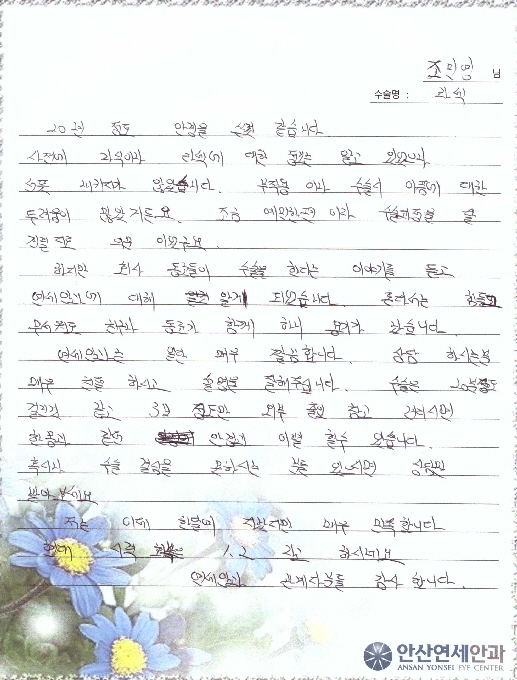 조민영 님
수술명 : 라식
20년 정도 안경을 쓴것 같습니다
사전에 라식이나 라섹에 대해 정보는 알고 있었으나
쉽지 않았습니다. 부작용 이나 수술시 아픔에 대한
두려움이 많았거든요. 조금 예민한편 이라 수술과정을 잘
견딜 지도 이었구요.
하지만 회사 동료들이 수술을 한다는 이야기를 듣고
연세안과에 대해 알게 되었습니다. 혼자서는 힘들
동료가 함께 하니 같습니다.
연세안과는 일단 매우 깔끔합니다. 상담 하시는분
매우 친절 하시고 설명을 잘해주십니다. 수술은 20분정도
걸린거 같고 3일 정도만 외부 출입 참고 견디시면
한몸과 같은 안경과 이별 할수 있습니다.
혹시나 수술 결심을 못하시는 분들 있으시면 상담만
받아 보세요
저는 이제 한달이 지났지만 매우 만족합니다
현재 시력 1.2 라고 하시네요
연세안과 관계자분들 감사 합니다.
안산연세안과
ANSAN YONSEI EYE CENTER